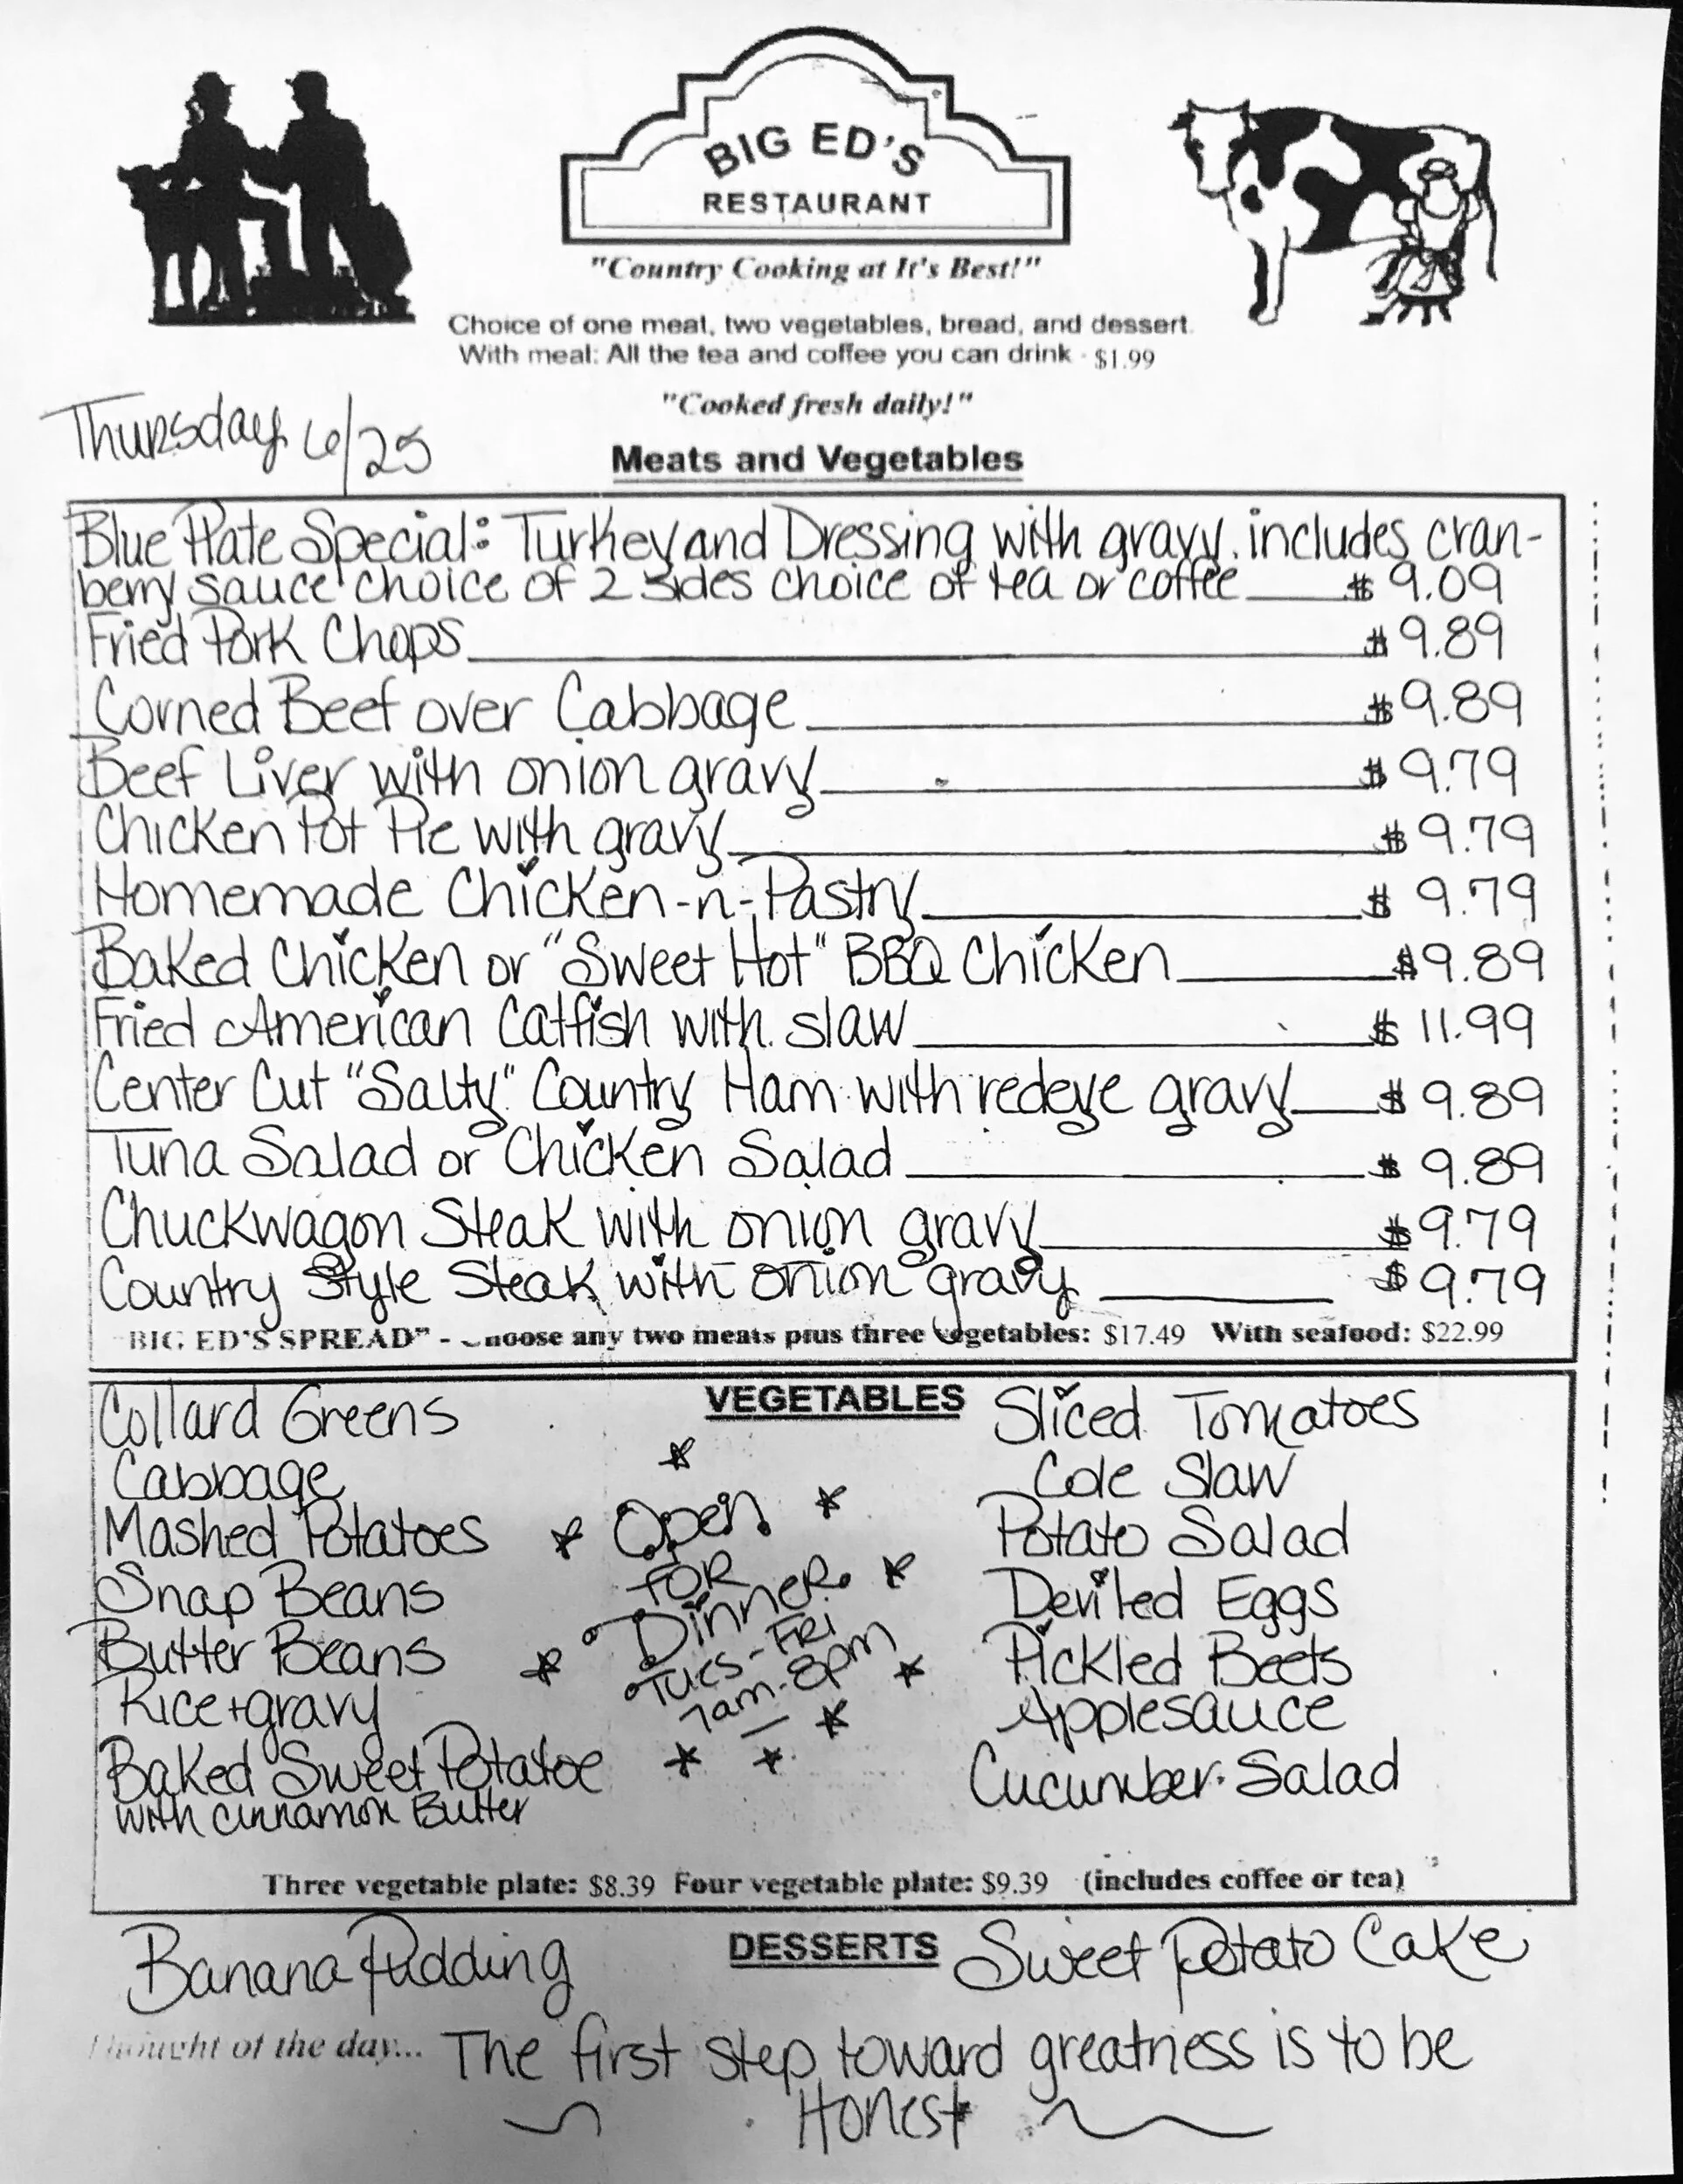 BIG ED'S
RESTAURANT
"Country Cooking at It's Best!"
Choice of one meat, two vegetables, bread, and dessert.
With meal: All the tea and coffee you can drink - $1.99
"Cooked fresh daily!"
Thursday 6/25
Meats and Vegetables
Blue Plate Special: Turkey and Dressing with gravy. includes cran-
berry sauce choice of 2 sides choice of tea or coffee $9.09
Fried Pork Chops $9.89
Corned Beef over Cabbage $9.89
Beef Liver with onion gravy $9.79
Chicken Pot Pie with gravy $9.79
Homemade Chicken-n-Pastry $9.79
Baked Chicken or "Sweet Hot" BBQ Chicken $9.89
Fried American Catfish with slaw $11.99
Center Cut "Salty" Country Ham with redeye gravy $9.89
Tuna Salad or Chicken Salad $9.89
Chuckwagon Steak with onion gravy $9.79
Country Style Steak with onion gravy $9.79
"BIG ED'S SPREAD" - Choose any two meats plus three vegetables: $17.49 With seafood: $22.99
VEGETABLES
Collard Greens
Cabbage
Mashed Potatoes
Snap Beans
Butter Beans
Rice + gravy
Baked Sweet Potatoe
with cinnamon Butter
Open
FOR
Dinner
Tues-FRI
7am-8pm
Sliced Tomatoes
Cole Slaw
Potato Salad
Deviled Eggs
Pickled Beets
Applesauce
Cucumber Salad
Three vegetable plate: $8.39 Four vegetable plate: $9.39 (includes coffee or tea)
DESSERTS
Banana Pudding
Sweet Potato Cake
Thought of the day... The first step toward greatness is to be
Honest